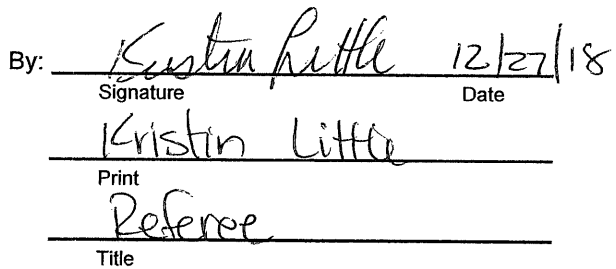 By: Kristin Little 12/27/18
Signature Date
Kristin Little
Print
Referee
Title